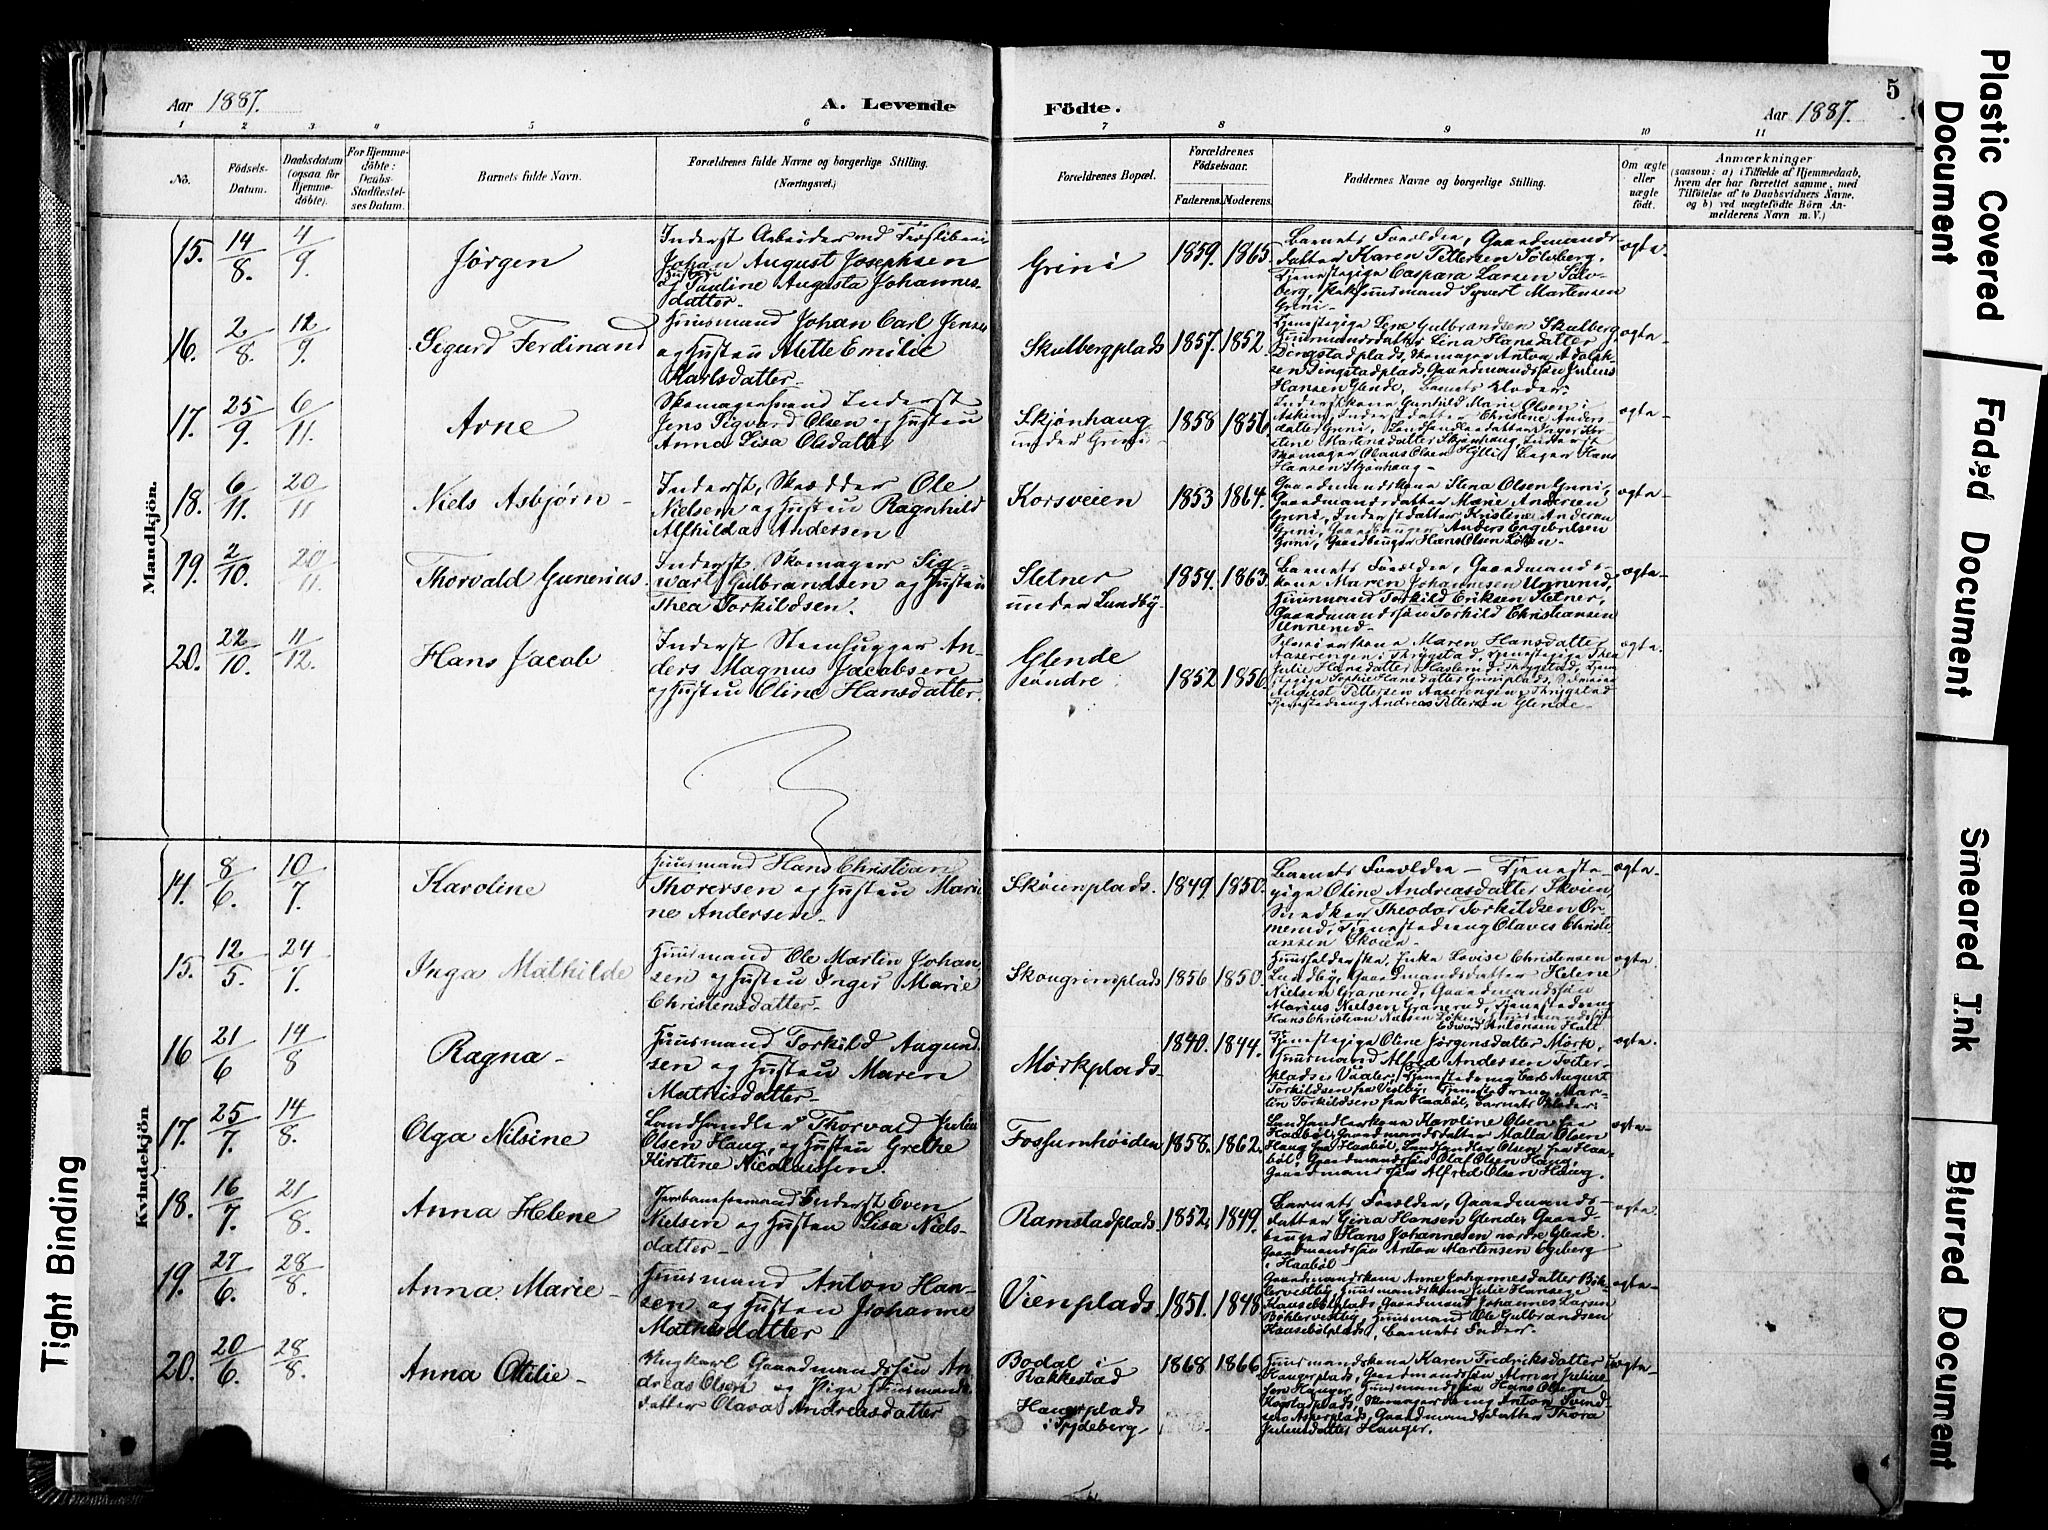 Aar 1887.
A. Levende
Födte.
Aar 1887.
5
1 2 3 4 5 6 7 8 9 10 11
No.
Födsels-
Datum.
Daabsdatum
(ogsaa for
Hjemme-
döbte).
For Hjemme-
döbte:
Daabs-
Stadfæstel-
ses Datum.
Barnets fulde Navn.
Forældrenes fulde Navne og borgerlige Stilling.
(Næringsvei.)
Forældrenes Bopæl.
Forældrenes
Födselsaar.
Faderens. Moderens.
Faddernes Navne og borgerlige Stilling.
Om ægte
eller
uægte
födt.
Anmærkninger
(saasom: a) i Tilfælde af Hjemmedaab,
hvem der har forrettet samme, med
Tilföielse af to Daabsvidners Navne,
og b) ved uægtefödte Börn An-
melderens Navn m. V.)
Mandkjön.
15. 14/8. 4/9. Jörgen
Inderst Arbeider ved
Johan August Josephsen
og Hustru Pauline Augusta Johannes-
datter.
Grini
1859. 1865.
Barnets Forældre, Gaardmands-
datter Karen Pettersen Sölvberg,
Tjenestepige Caspara Larsen Sölv-
berg, Huusmand Syvert Martinsen
Grini
ægte.
16. 2/8. 12/9. Sigurd Ferdinand
Huusmand Johan Carl Jensen
og Hustru Mette Emilie
Karlsdatter
Skulbergplads
1857. 1852.
Tjenestepige Lene Gulbrandsen Skulberg,
Huusmandsdatter Lina Hansdatter
Dingstadplads, Skomager Anton Adolph-
sen Dingstadplads, Gaardmandssön Julius
Hansen Glende, Barnets Moder.
ægte
17. 25/9. 6/11. Arne
Skomagersvend Inderst
Jens Sigvard Olsen og Hustru
Anna Lisa Olsdatter
Skjönhaug
under Grini
1858 1856
Inderstkone Gunhild Marie Olsen i
Askim, Inderstdatter Christine Anders-
datter Grini,
Skomager Olaus Olsen Hylli,
Hansen Skjönhaug
ægte
18. 6/11. 20/11 Niels Asbjörn
Inderst, Skrædder Ole
Nielsen og Hustru Ragnhild
Alfhilda Andersen
Korsveien
1853 1864.
Gaardmandskone Stena Olsen Grini,
Gaardmandsdatter Marie Andersen
Grini, Inderstdatter Kristine Andersen
Grini, Gaardbruger Anders Engebretsen
Grini, Gaardbruger Hans Olsen Löken
ægte
19. 2/10. 20/11. Thorvald Gunerius.
Inderst, Skomager Sig-
wart Gulbrandsen og Hustru
Thea Torkildsen.
Sletner
under Lundby.
1854. 1863.
Barnets Forældre, Gaardmands-
kone Maren Johannesen Unnerud,
Huusmand Torkild Eriksen Sletner,
Gaardmandssön Torkild Christiansen
Unnerud
ægte
20. 22/10. 11/12. Hans Jacob
Inderst Stenhugger An-
ders Magnus Jacobsen
og Hustru Oline Hansdatter
Glende
söndre.
1852 1856.
Maren Hansdatter
Aaserengen i Thrygstad, Tjenestepige Thea
Julie Hansdatter Haslerud i Thrygstad, Tjene-
stepige Sophie Hansdatter Griniplads, Selveier
August Pettersen Aaserengen i Thrygstad
Tjenestedreng Andreas Pettersen Glende
ægte.
Kvindekjön
14. 8/6. 10/7. Karoline
Huusmand Hans Christian
Thoresen og Hustru Mari-
ne Andersen.
Skoienplads.
1849. 1850.
Barnets Forældre – Tjeneste-
pige Oline Andreasdatter Skoien,
Snedker Theodor Torkildsen Or-
merud, Tjenestedreng Olaves Christi-
ansen Skoien
ægte.
15. 12/5. 24/7. Inga Mathilde
Huusmand Ole Martin Johan-
sen og Hustru Inger Marie
Christensdatter
Skougriniplads
1856 1850.
Huusholderske, Enke Lovise Christensen
Lundby, Gaardmandsdatter Helene
Nielsen Granerud, Gaardmandssön
Marius Nielsen Granerud, Tjenestedreng
Hans Christian Nielsen Löken, Huusmandssön
Edvard Antonsen Hall
ægte.
16 21/6 14/8 Ragna
Huusmand Torkild Aagund-
sen og Hustru Maren
Mathisdatter
Mörkplads
1840. 1844.
Tjenestepige Oline Jörgensdatter Mörk,
Huusmand Alfred Andersen
plads i Vaaler, Tjenestedreng Carl August
Torkildsen fra Vestby, Tjenestedreng Mar-
tin Torkildsen fra Haaböl, Barnets Moder.
ægte.
17. 25/7. 14/8. Olga Nilsine
Landhandler Thorvald Julius
Olsen Haug, og Hustru Grethe
Kirstine Nicolaisen.
Fossumhöiden
1858. 1862.
Landhandlerkone Karoline Olsen fra
Haaböl, Gaardmandsdatter Malla Olsen
Haug fra Haaböl, Landhandler Olsen fra Haa-
böl, Gaardmandssön Olaf Olsen Haug,
Gaardmandssön Alfred Olsen Haug.
ægte
18. 16/7. 21/8. Anna Helene
Jernbaneformand Inderst Even
Nielsen og Hustru Lisa Niels-
datter
Ramstadplads
1852. 1849.
Barnets Forældre, Gaardmands-
datter Gina Hansen Glende, Gaard-
bruger Hans Johannesen nordre Glende,
Gaardmandssön Anton Martensen Egeberg
i Haaböl
ægte.
19. 27/6. 28/8. Anna Marie
Huusmand Anton Han-
sen og Hustru Johanne
Mathisdatter
Vienplads
1851. 1848
Gaardmandskone Anne Johannesdatter Böh-
lervestby, Huusmandskone Julie Hansen
Haaseböl plads, Gaardmand Johannes Larsen
Böhlervestby, Huusmand Ole Gulbrandsen
Haasebölplads, Barnets Fader.
ægte
20. 20/6. 28/8. Anna Otilie
Ungkarl Gaardmandssön An-
dreas Olsen og Pige Huusmands-
datter Olava Andreasdatter
Bodal i
Rakkestad
Haugerplads
i Spydeberg
1868 1866
Huusmandskone Karen Fredriksdatter
Haugerplads, Gaardmandssön Morten Julius-
sen Hauger, Huusmandssön Hans Olsen
Skomagerdreng Anton Svend-
sen Gaardmandsdatter Thora
Juliusdatter Hauger.
uægte
Plastic Covered
Document
Faded Document
Smeared Ink
Blurred Document
Tight Binding